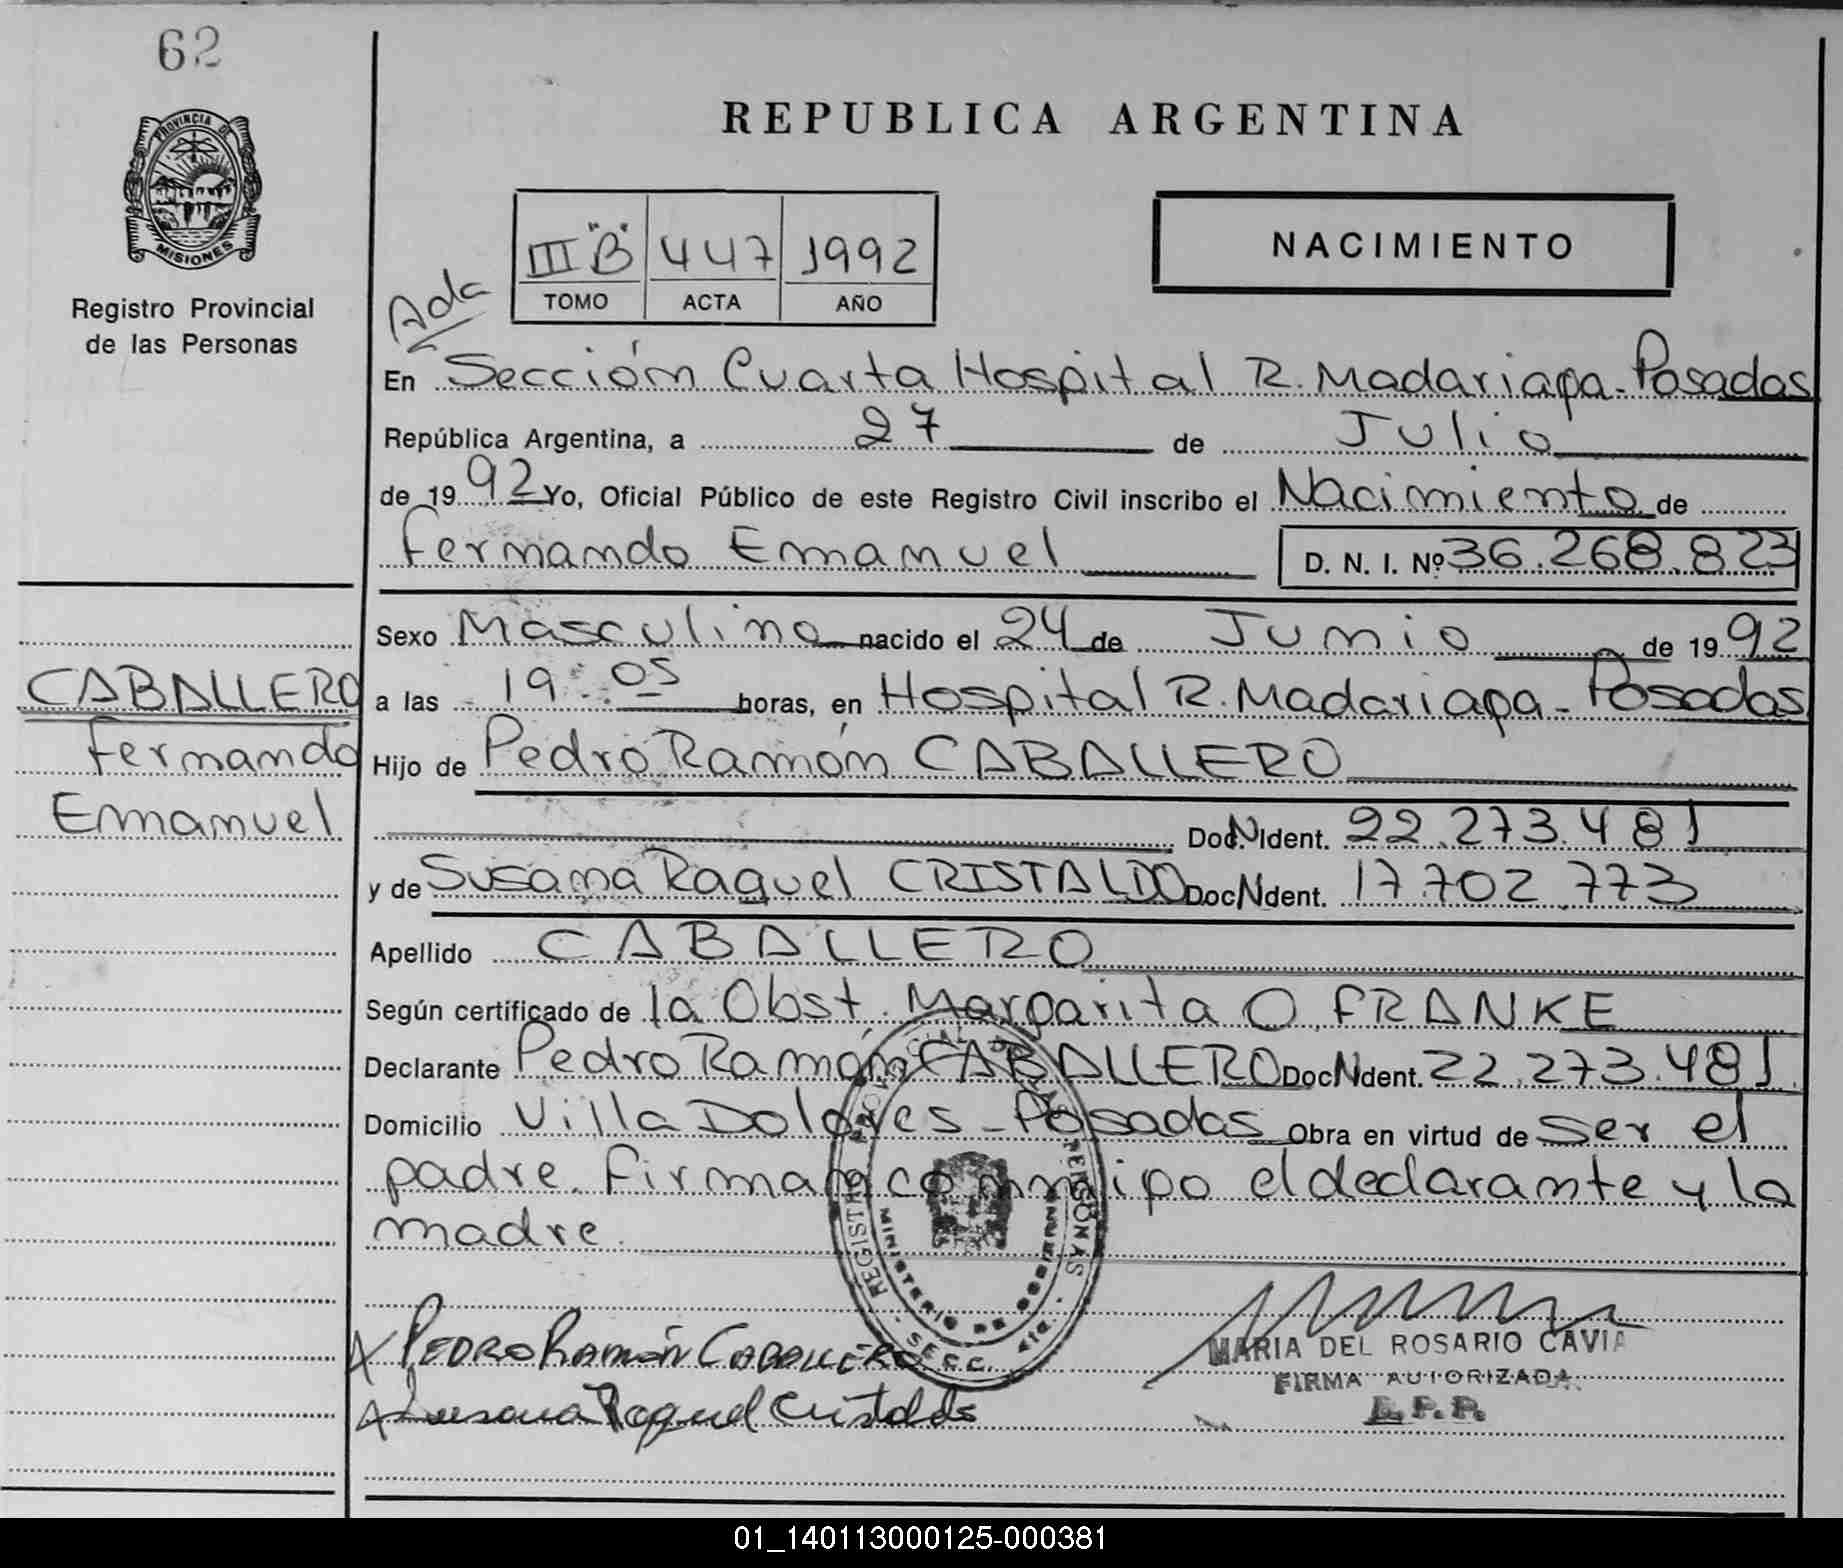 62
PROVINCIA DE
MISIONES
Registro Provincial
de las Personas
REPUBLICA ARGENTINA
III "B" 447 1992
TOMO ACTA AÑO
NACIMIENTO
En Sección Cuarta Hospital R. Madariaga - Posadas
República Argentina, a 27 de Julio
de 1992 Yo, Oficial Público de este Registro Civil inscribo el Nacimiento de
Fernando Emanuel D. N. I. Nº 36.268.823
Sexo Masculino nacido el 24 de Junio de 1992
a las 19:05 horas, en Hospital R. Madariaga - Posadas
Hijo de Pedro Ramón CABALLERO
Doc.N.Ident. 22.273.481
y de Susana Raquel CRISTALDO DocNdent. 17.702.773
Apellido CABALLERO
Según certificado de la Obst. Margarita O. FRANKE
Declarante Pedro Ramón CABALLERO DocNdent. 22.273.481
Domicilio Villa Dolores - Posadas Obra en virtud de ser el
padre. Firman conmigo el declarante y la
madre.
CABALLERO
Fernando
Emanuel
PEDRO RAMÓN CABALLERO
Susana Raquel Cristaldo
MARIA DEL ROSARIO CAVIA
FIRMA AUTORIZADA
R.P.P.
MINISTERIO DE GOBIERNO
SECC. 4ta.
01_140113000125-000381